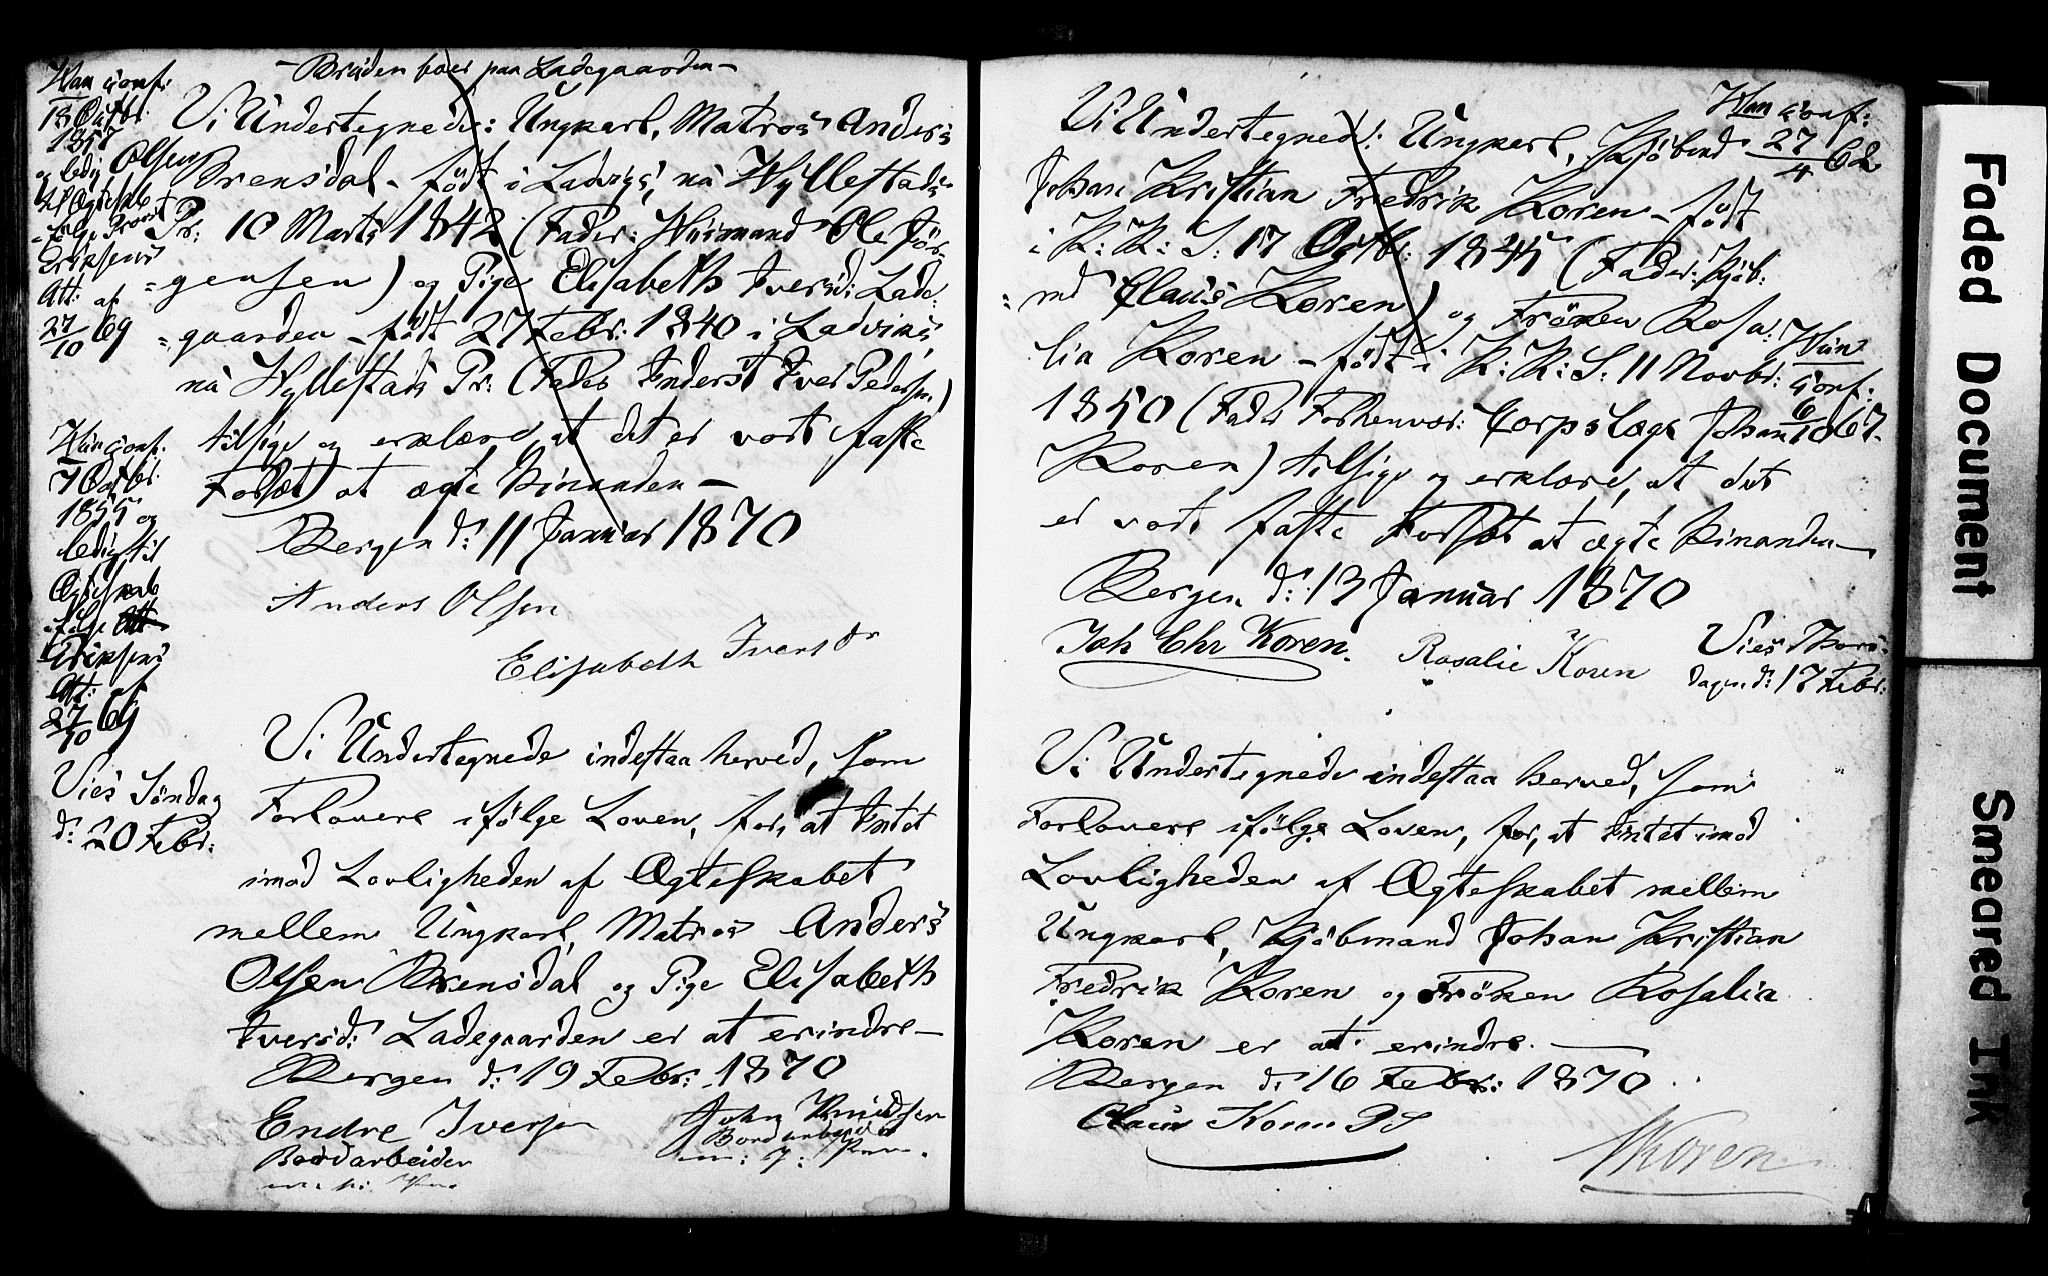 - Bruden boer paa Ladegaarden -
Han conf:
18 Octbr.
1857
og ledig
til Ægteskab
ifølge Provst
Eriksens
Att: af
27/10 69
Vi Undertegnede: Ungkarl, Matros Anders
Olsen Brensdal - født i Ladvigs, nu Hyllestads
Pr: 10 Marts 1842 (Fader: Huusmand Ole Jör-
=gensen) og Pige Elisabeth Iversd: Lade-
=gaarden - født 27 Febr: 1840 i Ladviks,
nu Hyllestads Pr: (Fader Inderst Iver Pedersen)
tilsige og erklære, at det er vort faste
Forsæt at ægte hinanden -
Bergen d: 11 Januar 1870
Anders Olsen
Elisabeth Iversdr
Hun conf:
7 Octbr.
1855 og
ledig til
Ægteskab
ifølge
Eriksens
Att: af
27/10 69
Vies Söndag
d: 20 Febr:
Vi Undertegnede indestaa herved, som
Forlovere ifölge Loven, for, at Intet
imod Lovligheden af Ægteskabet
mellem Ungkarl, Matros Anders
Olsen Brensdal og Pige Elisabeth
Iversd: Ladegaarden er at erindre -
Bergen d: 19 Febr: 1870
Endre Iversen
Bordarbeider
John Knudsen
Bordarbeider
m: i: Pen.
Han conf:
27/4 62
Vi Undertegned: Ungkarl, Kjöbmd
Johan Kristian Fredrik Koren - født
i K: K: S: 17 Octbr: 1845 (Fader: Kjöb-
=md Claus Koren) og Fröken Rosa-
lia Koren - födt i K: K: S: 11 Novbr:
1850 (Fader Forhenvær: Corpslæge Johan
Koren) tilsige og erklære, at det
er vort faste Forsæt at ægte hinanden -
Hun
conf:
6/10 67.
Bergen d: 13 Januar 1870
Joh Chr Koren. Rosalie Koren
Vies Thors-
dagen d: 17 Febr:
Vi Undertegnede indestaa herved, som
Forlovere ifölge Loven, for, at Intet imod
Lovligheden af Ægteskabet mellem
Ungkarl, Kjöbmand Johan Kristian
Fredrik Koren og Fröken Rosalia
Koren er at erindre. -
Bergen d: 16 Febr: 1870
Claus Koren
Koren
Faded Document
Smeared Ink